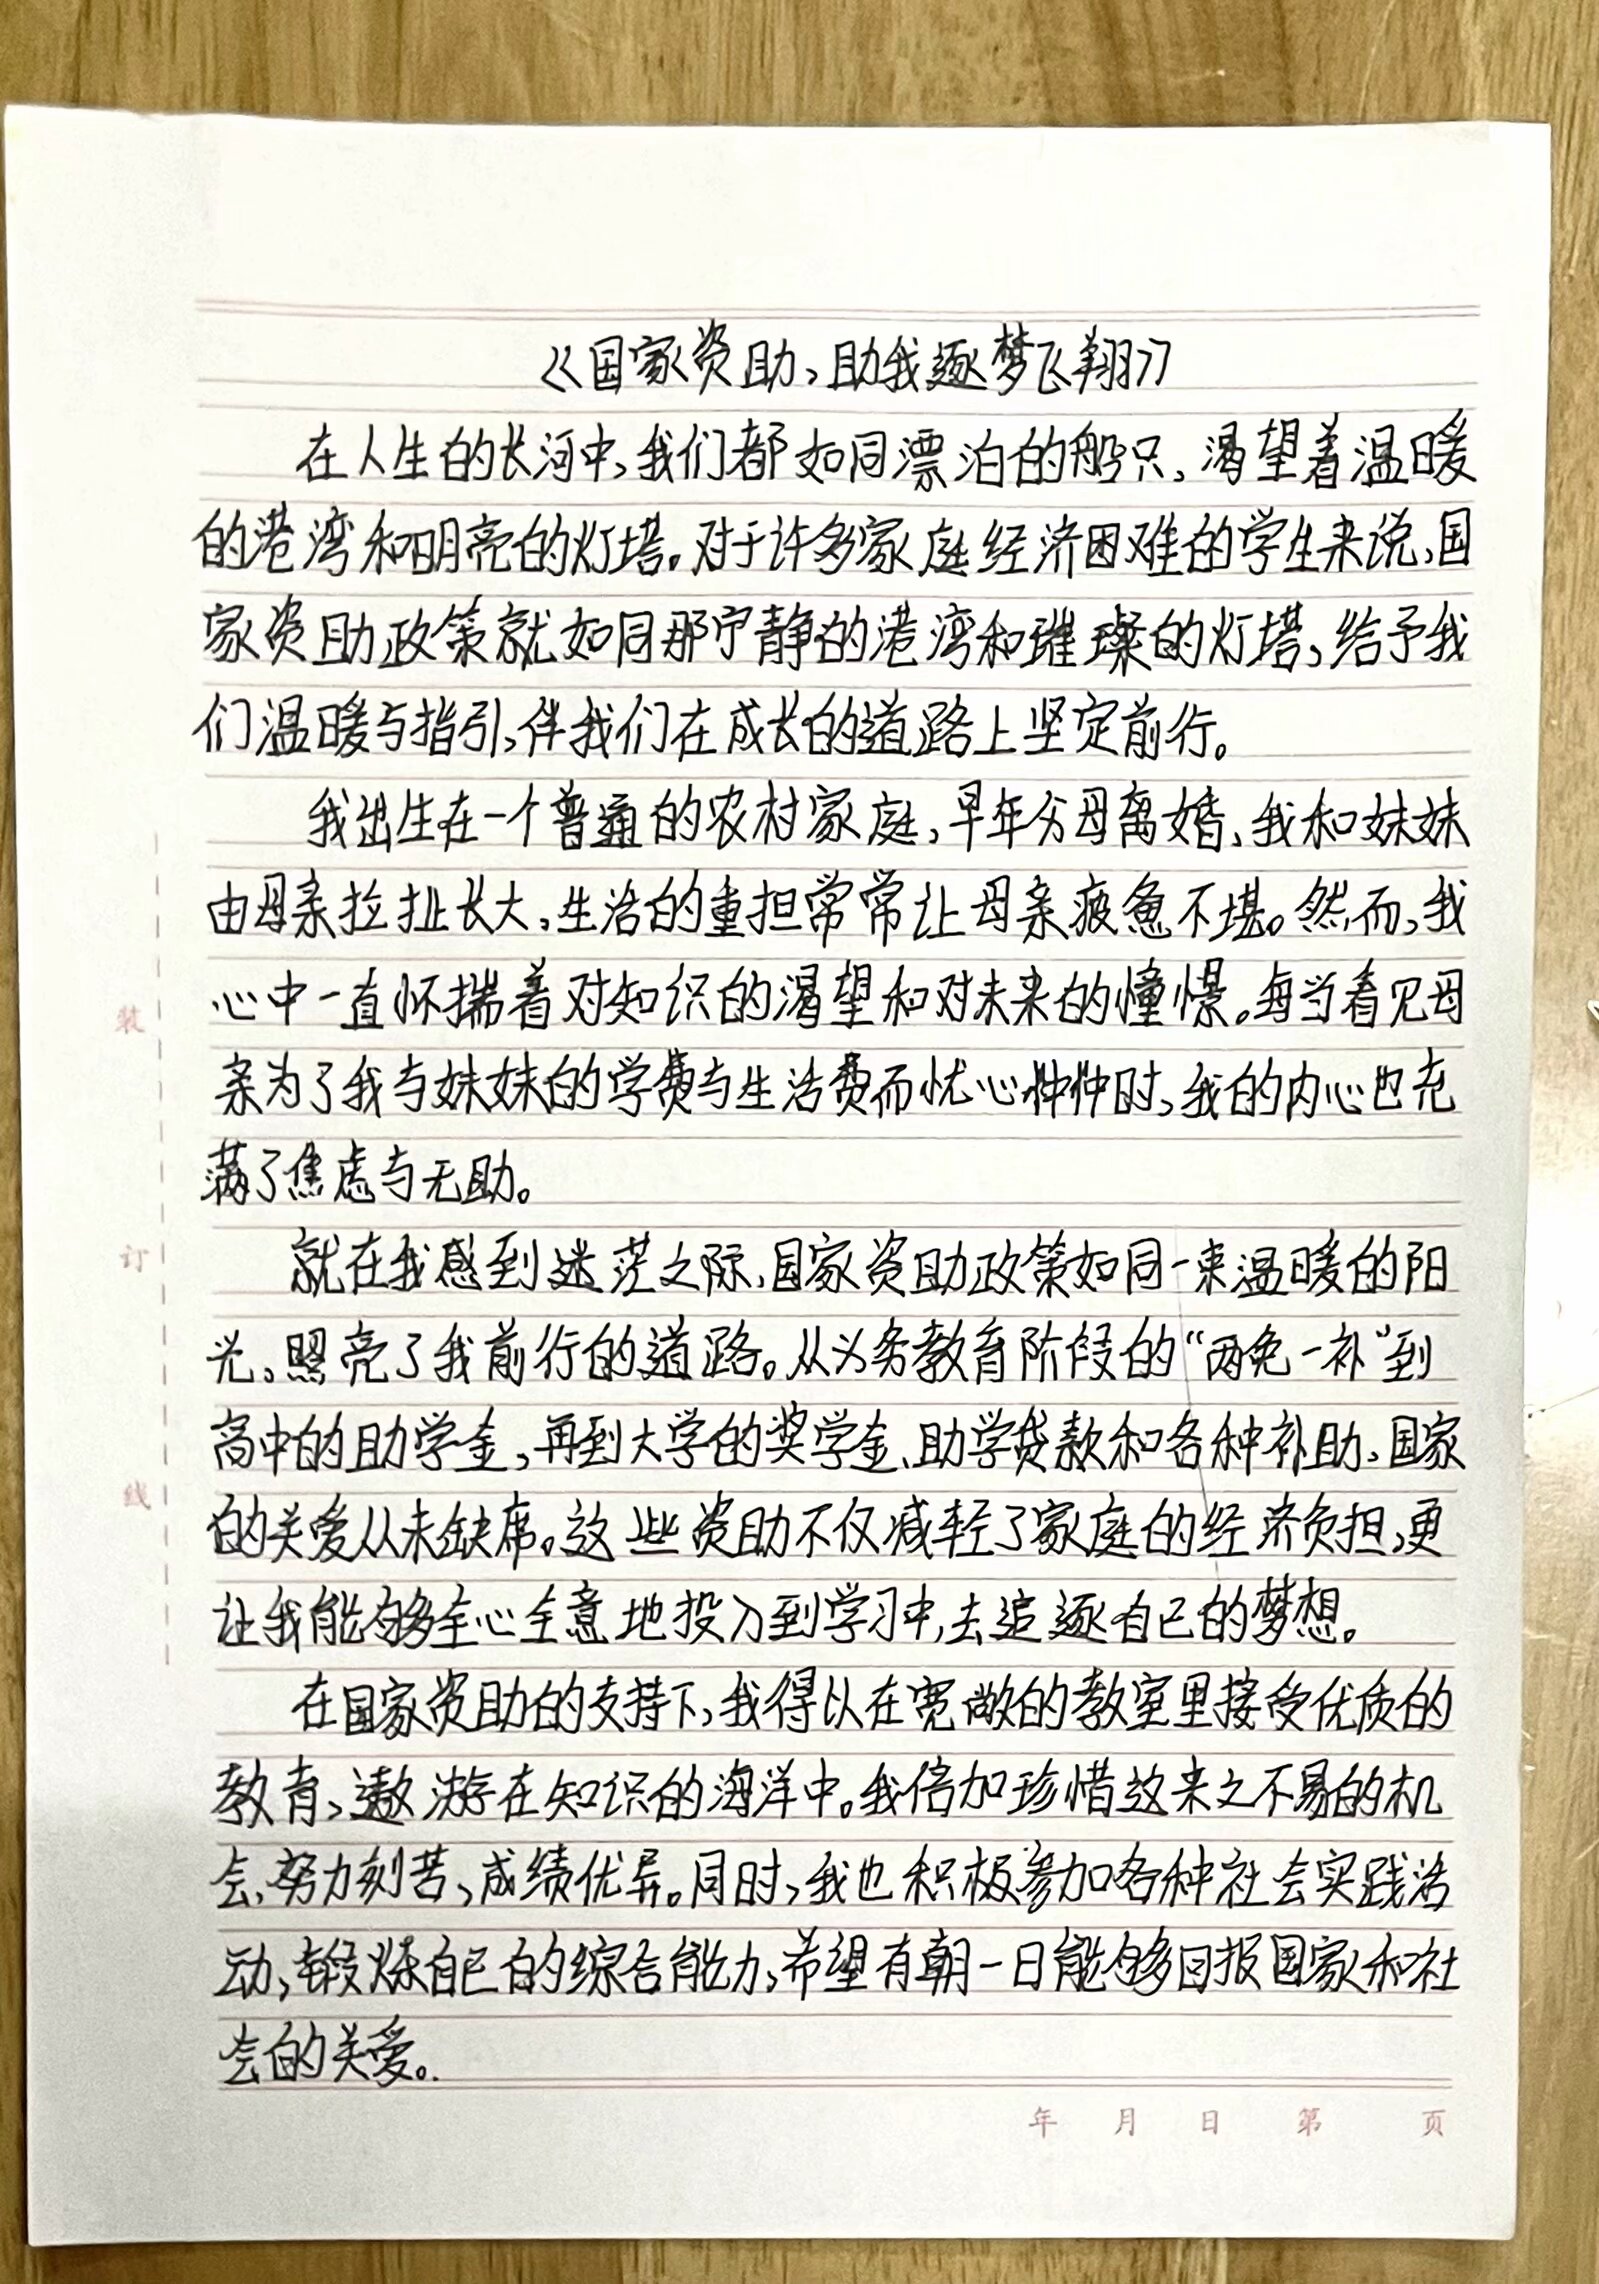 《国家资助,助我逐梦飞翔》
在人生的长河中,我们都如同漂泊的船只,渴望着温暖
的港湾和明亮的灯塔。对于许多家庭经济困难的学生来说,国
家资助政策就如同那宁静的港湾和璀璨的灯塔,给予我
们温暖与指引,伴我们在成长的道路上坚定前行。
我出生在一个普通的农村家庭,早年父母离婚,我和妹妹
由母亲拉扯长大,生活的重担常常让母亲疲惫不堪。然而,我
心中一直怀揣着对知识的渴望和对未来的憧憬。每当看见母
亲为了我与妹妹的学费与生活费而忧心忡忡时,我的内心也充
满了焦虑与无助。
就在我感到迷茫之际,国家资助政策如同一束温暖的阳
光,照亮了我前行的道路。从义务教育阶段的“两免一补”到
高中的助学金,再到大学的奖学金、助学贷款和各种补助,国家
的关爱从未缺席。这些资助不仅减轻了家庭的经济负担,更
让我能够全心全意地投入到学习中,去追逐自己的梦想。
在国家资助的支持下,我得以在宽敞的教室里接受优质的
教育,遨游在知识的海洋中。我倍加珍惜这来之不易的机
会,努力刻苦,成绩优异。同时,我也积极参加各种社会实践活
动,锻炼自己的综合能力,希望有朝一日能够回报国家和社
会的关爱。
装
订
线
年 月 日 第 页